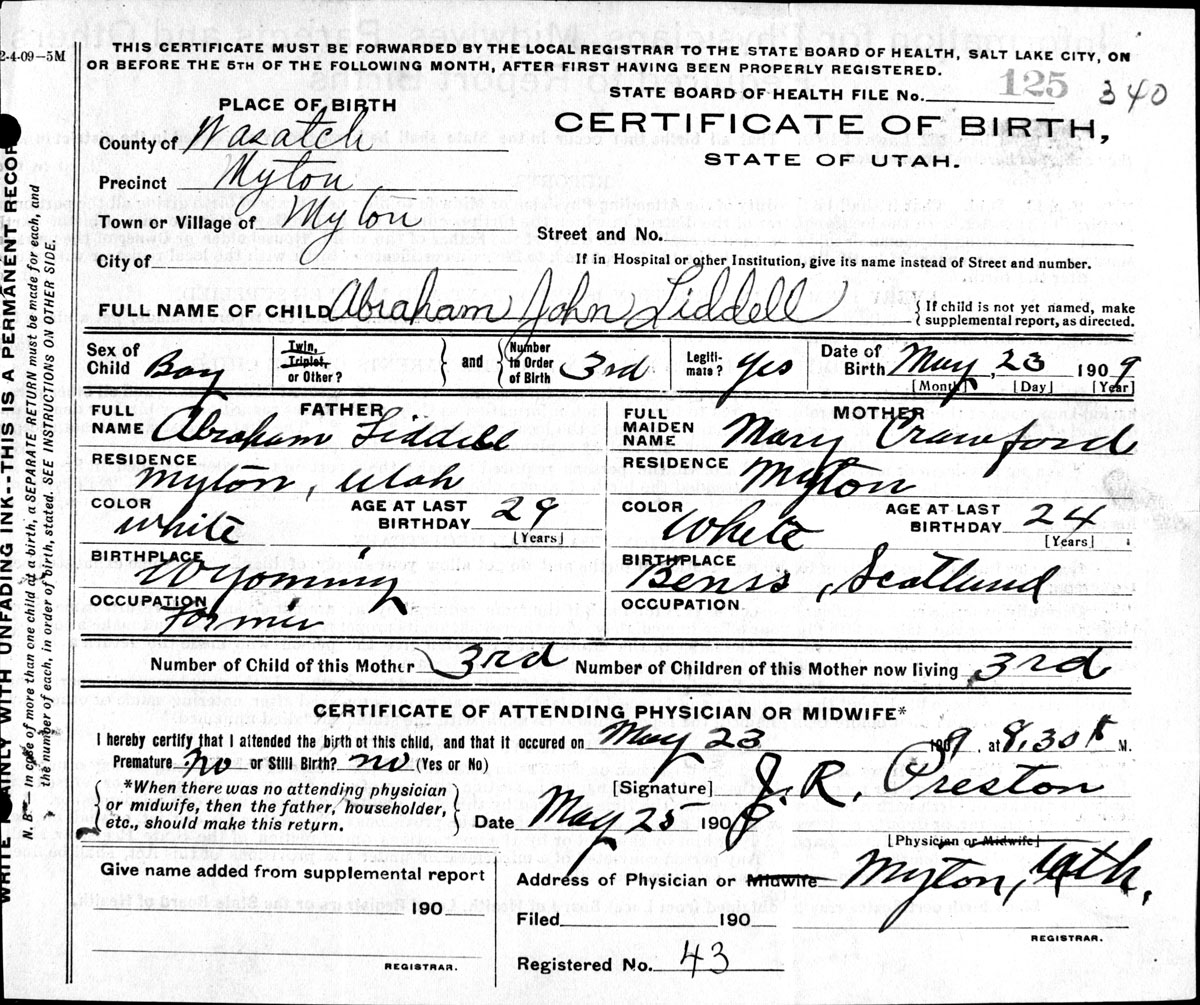 2-4-09—5M
THIS CERTIFICATE MUST BE FORWARDED BY THE LOCAL REGISTRAR TO THE STATE BOARD OF HEALTH, SALT LAKE CITY, ON
OR BEFORE THE 5TH OF THE FOLLOWING MONTH, AFTER FIRST HAVING BEEN PROPERLY REGISTERED.
STATE BOARD OF HEALTH FILE No. 125 340
PLACE OF BIRTH
CERTIFICATE OF BIRTH,
STATE OF UTAH.
County of Wasatch
Precinct Myton
Town or Village of Myton
Street and No.
City of
If in Hospital or other Institution, give its name instead of Street and number.
FULL NAME OF CHILD Abraham John Liddell
{If child is not yet named, make
supplemental report, as directed.
Sex of Child Boy
Twin, Triplet, or Other? } and { Number in Order of Birth 3rd
Legitimate? Yes
Date of Birth May 23 1909
[Month] [Day] [Year]
FATHER
FULL NAME Abraham Liddell
RESIDENCE Myton, Utah
COLOR White
AGE AT LAST BIRTHDAY 29
[Years]
BIRTHPLACE Wyoming
OCCUPATION
MOTHER
FULL MAIDEN NAME Mary Crawford
RESIDENCE Myton
COLOR White
AGE AT LAST BIRTHDAY 24
[Years]
BIRTHPLACE Scotland
OCCUPATION
Number of Child of this Mother 3rd Number of Children of this Mother now living 3rd
CERTIFICATE OF ATTENDING PHYSICIAN OR MIDWIFE*
I hereby certify that I attended the birth of this child, and that it occured on May 23 1909, at 8,30 M.
Premature no or Still Birth? no (Yes or No)
{*When there was no attending physician
or midwife, then the father, householder,
etc., should make this return.}
[Signature] J. R. Preston
Date May 25 1909
[Physician or Midwife]
Give name added from supplemental report
190
REGISTRAR.
Address of Physician or Midwife Myton, Utah.
Filed 190
REGISTRAR.
Registered No. 43
WRITE PLAINLY WITH UNFADING INK--THIS IS A PERMANENT RECORD
N. B.—In case of more than one child at a birth, a SEPARATE RETURN must be made for each, and
the number of each, in order of birth, stated. SEE INSTRUCTIONS ON OTHER SIDE.